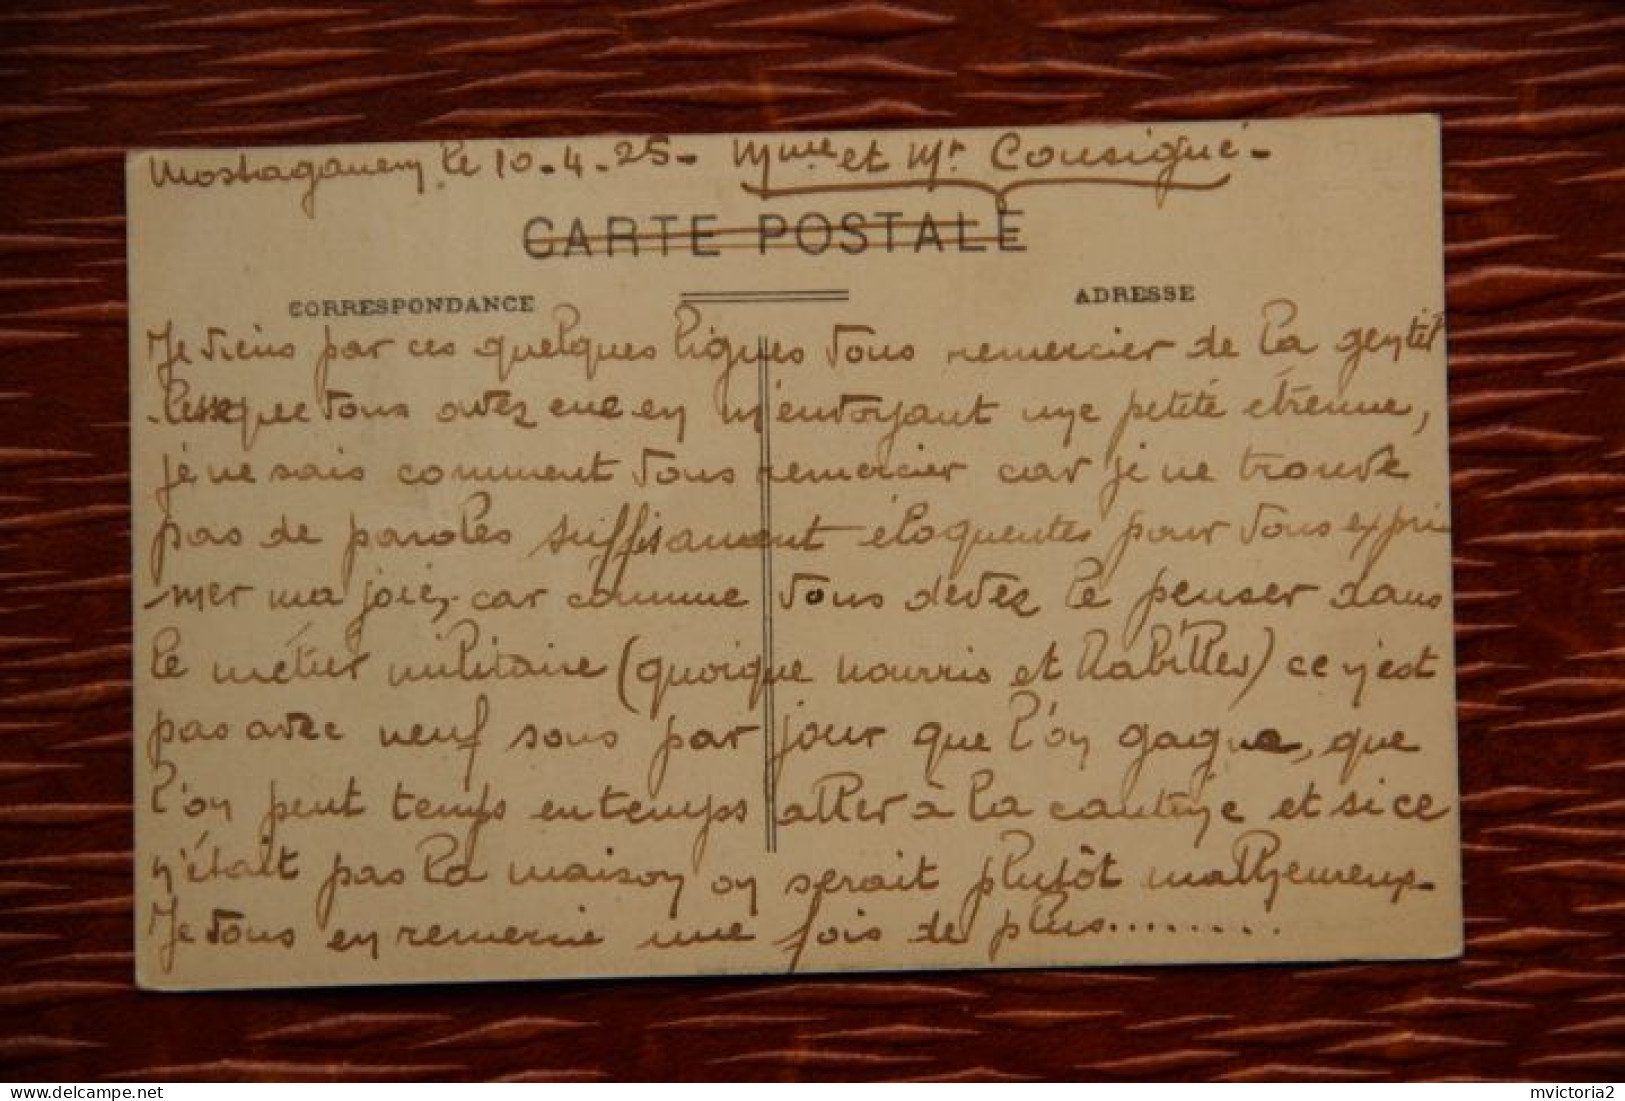 Mostaganem, le 10-4-25- Mme et Mr Consigné-
CARTE POSTALE
CORRESPONDANCE
ADRESSE
Je viens par ces quelques lignes vous remercier de la gentil
-lesse que vous avez eue en m'envoyant une petite étrenne,
je ne sais comment vous remercier car je ne trouve
pas de paroles suffisamment éloquentes pour vous expri
mer ma joie, car comme vous devez le penser dans
le métier militaire (quoique nourris et habillés) ce n'est
pas avec neuf sous par jour que l'on gagne, que
l'on peut temps en temps aller à la cantine et si ce
n'était pas la maison on serait plutôt malheureux-
Je vous en remercie une fois de plus.........
mvictoria2